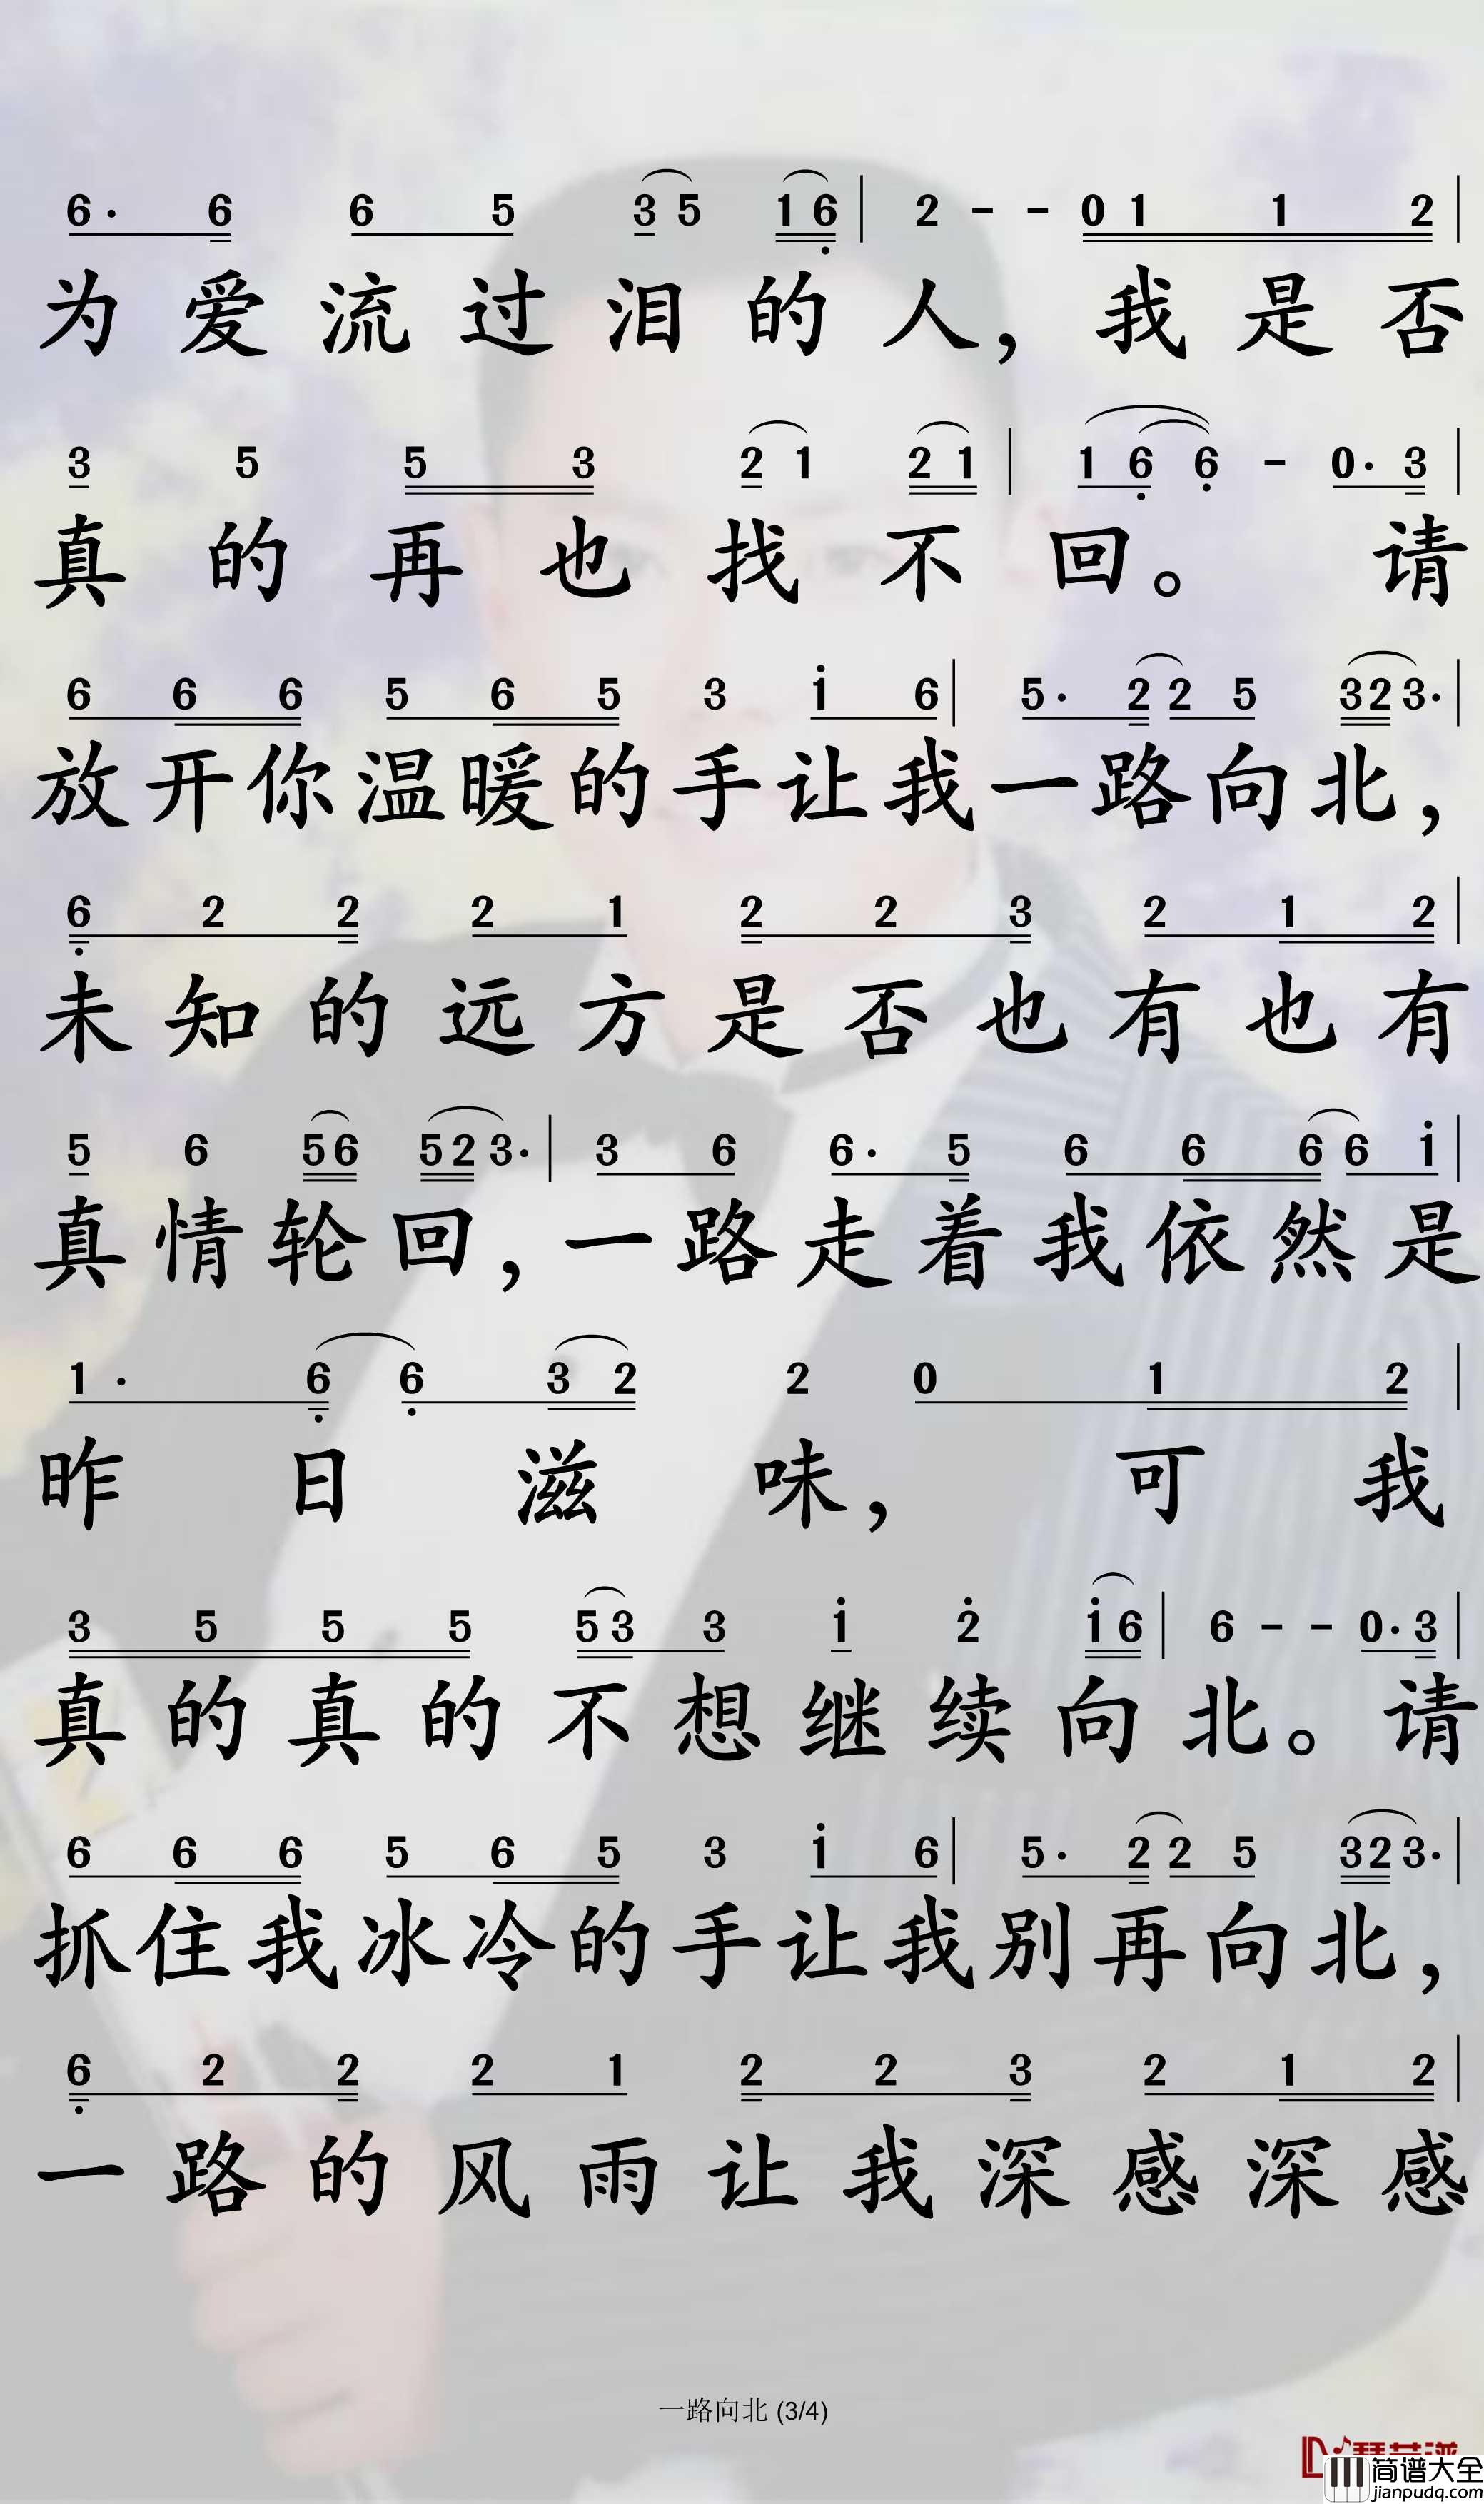 6· 6 6 5 3 5 1 6 | 2 - - 0 1 1 2 |
为爱流过泪的人，我是否
3 5 5 3 2 1 2 1 | 1 6 6 - 0· 3 |
真的再也找不回。请
6 6 6 5 6 5 3 1 6 | 5· 2 2 5 3 2 3· |
放开你温暖的手让我一路向北，
6 2 2 2 1 2 2 3 2 1 2 |
未知的远方是否也有也有
5 6 5 6 5 2 3· | 3 6 6· 5 6 6 6 6 1 |
真情轮回，一路走着我依然是
1· 6 6 3 2 2 0 1 2 |
昨日滋味，可我
3 5 5 5 5 3 3 1 2 1 6 | 6 - - 0· 3 |
真的真的不想继续向北。请
6 6 6 5 6 5 3 1 6 | 5· 2 2 5 3 2 3· |
抓住我冰冷的手让我别再向北，
6 2 2 2 1 2 2 3 2 1 2 |
一路的风雨让我深感深感
一路向北 (3/4)
简谱大全
jianpudq.com